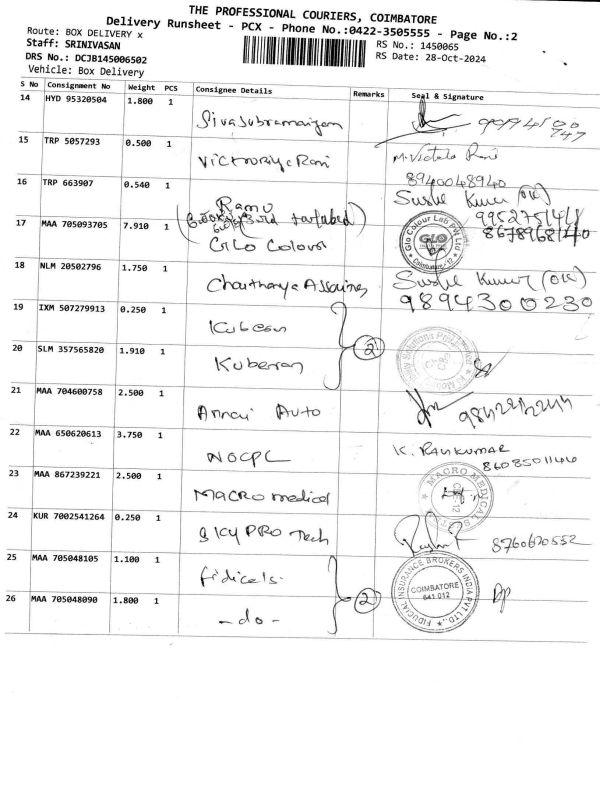 THE PROFESSIONAL COURIERS, COIMBATORE
Delivery Runsheet - PCX - Phone No.:0422-3505555 - Page No.:2
Route: BOX DELIVERY x
Staff: SRINIVASAN
RS No.: 1450065
DRS No.: DCJB145006502
RS Date: 28-Oct-2024
Vehicle: Box Delivery
S No Consignment No Weight PCS Consignee Details Remarks Seal & Signature
14 HYD 95320504 1.800 1
Sivasubramaniyam
15 TRP 5057293 0.500 1
Victoriya Rani M. Victoria Rani
8940048940
16 TRP 663907 0.540 1
Ramu Sushil Kumar (OK)
17 MAA 705093705 7.910 1
Glo Colour Glo Colour Lab Pvt Ltd GLO Coimbatore - 12 8678968140
18 NLM 20502796 1.750 1
Chaithanya Associates Sushil Kumar (OK)
9894300230
19 IXM 507279913 0.250 1
Kuberan
2
20 SLM 357565820 1.910 1
Kuberan
21 MAA 704600758 2.500 1
Annai Auto
22 MAA 650620613 3.750 1
NOCPL K. RAVIKUMAR
8608501146
23 MAA 867239221 2.500 1
Macro medical MACRO MEDICALS
24 KUR 7002541264 0.250 1
SKY PRO Tech 8760670552
25 MAA 705048105 1.100 1
fidicals.
2 FIDUCIAL INSURANCE BROKERS INDIA PVT LTD., COIMBATORE 641 012
26 MAA 705048090 1.800 1
- do -